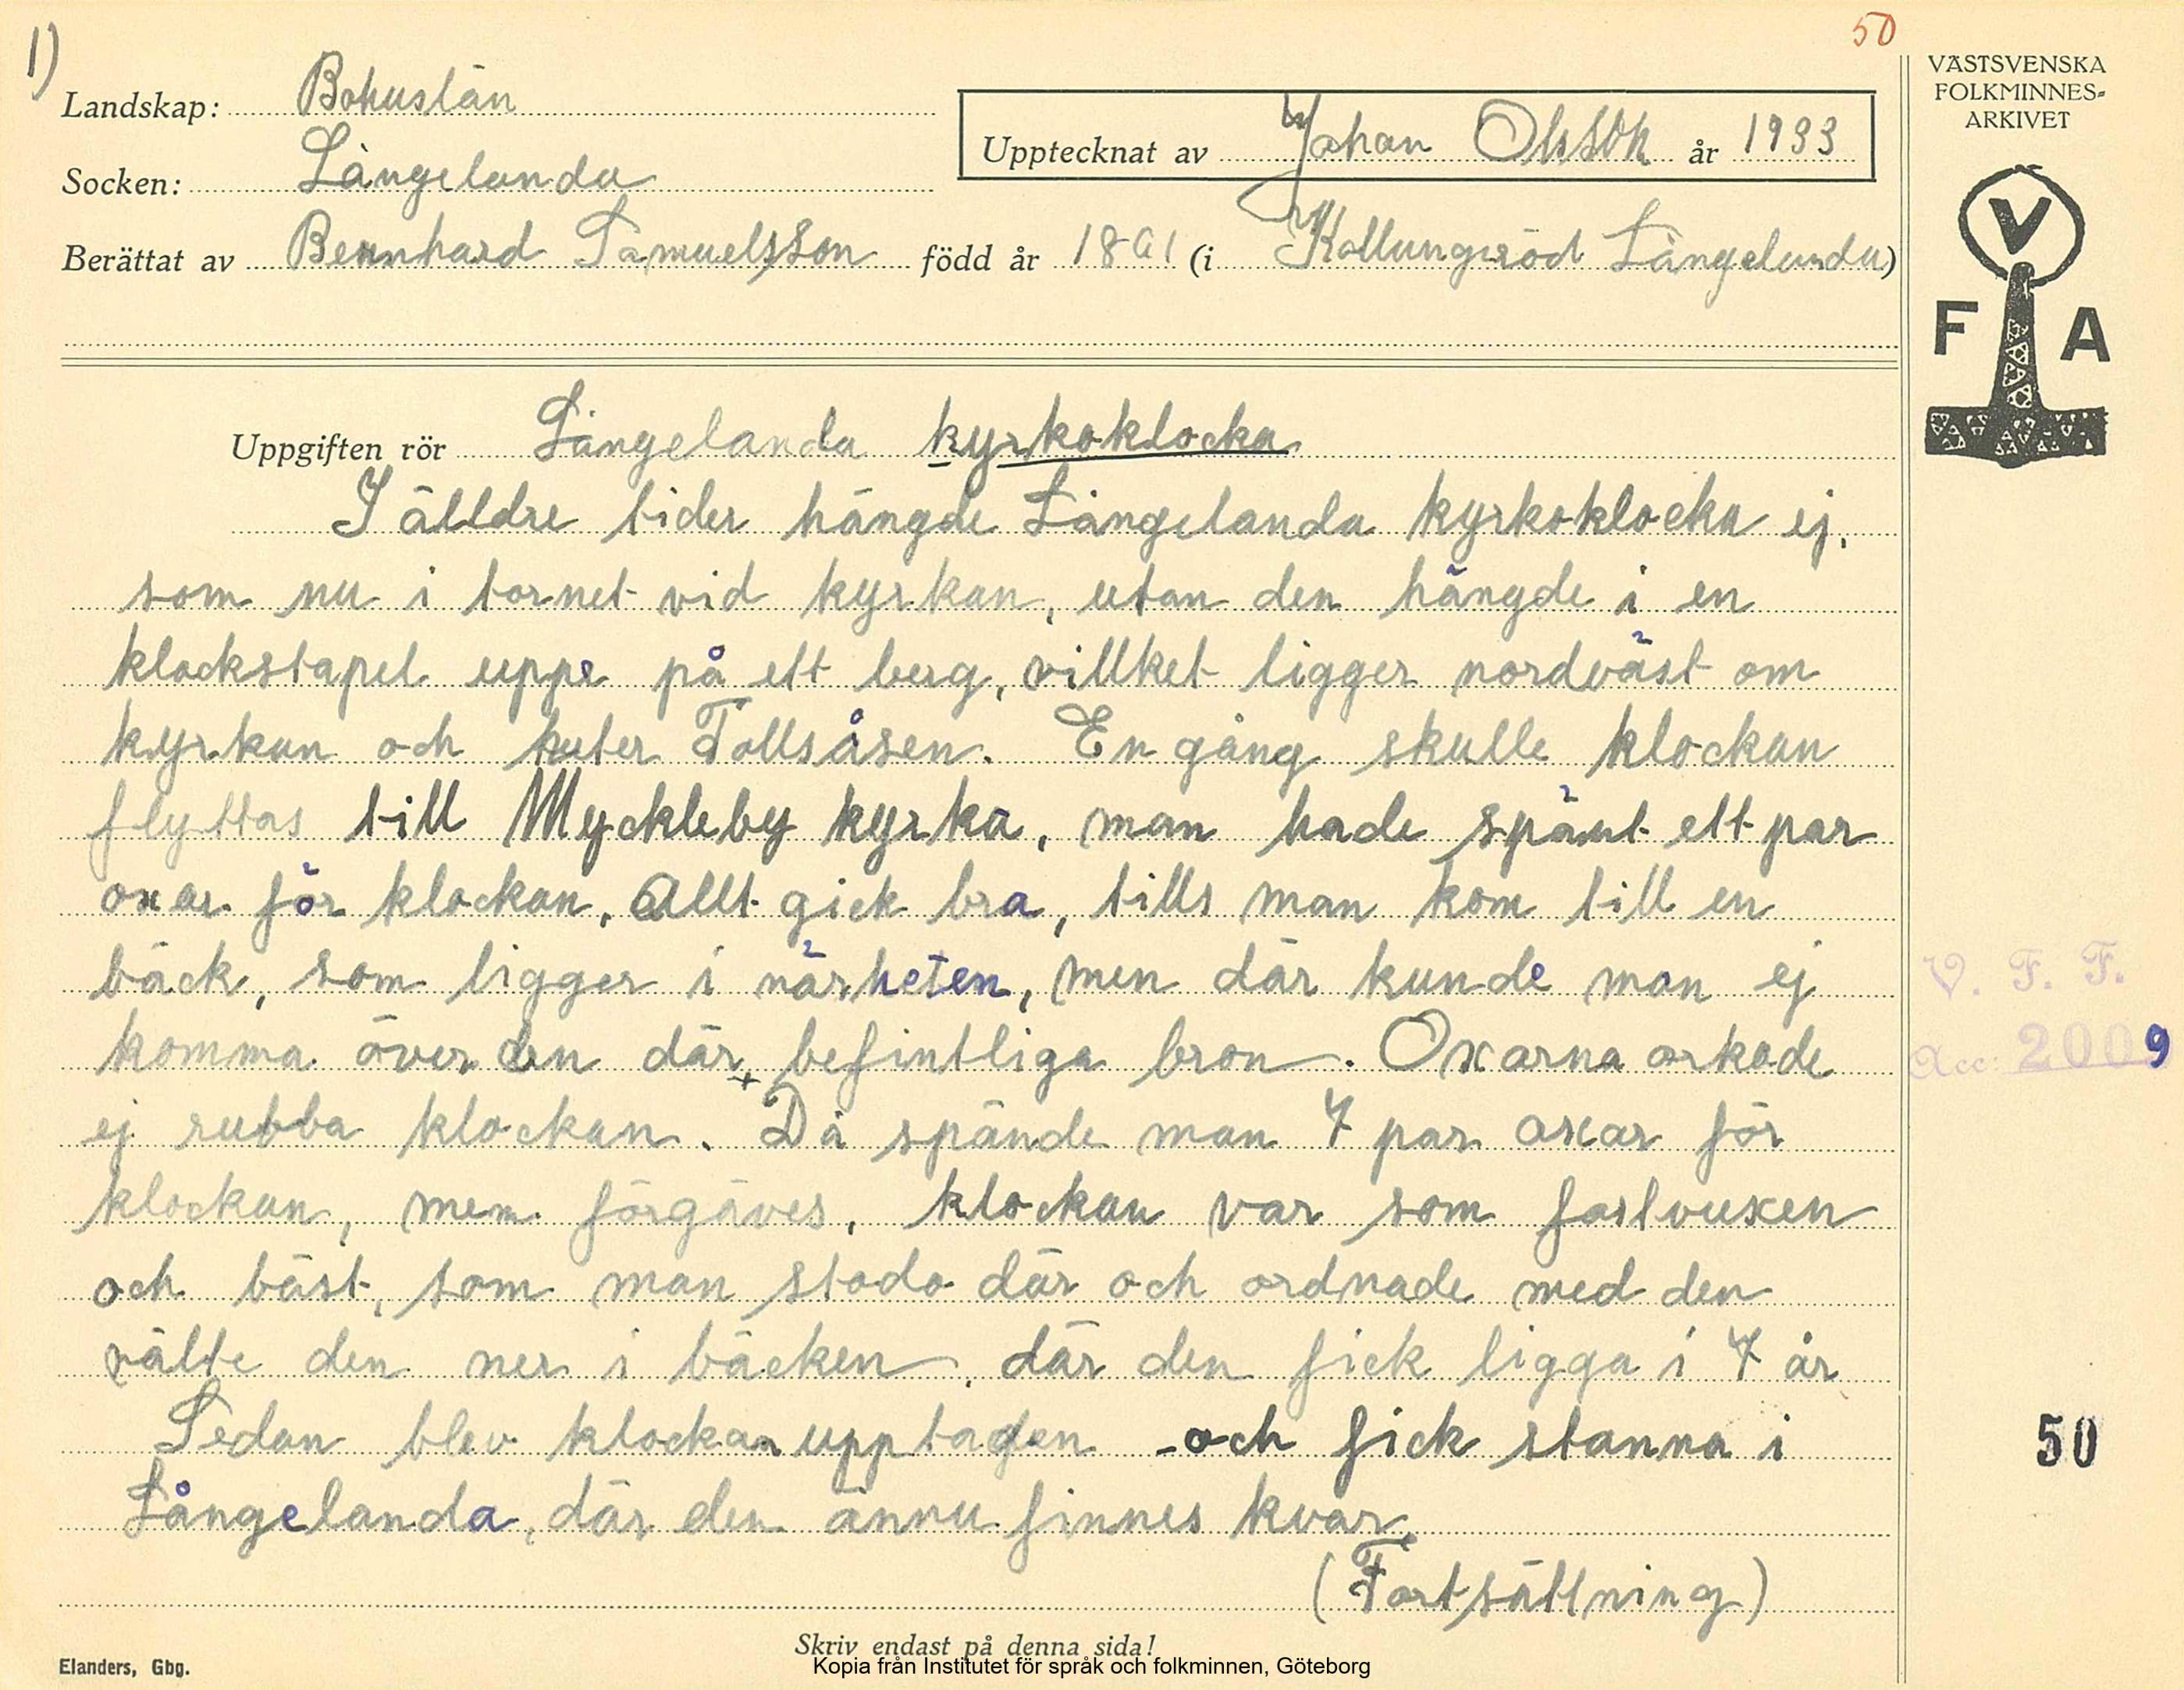 1)
50
Landskap: Bohuslän
Socken: Långelanda
Upptecknat av Johan Olsson år 1933
Berättat av Bernhard Samuelsson född år 1861 (i Kollungeröd Långelanda)
VÄSTSVENSKA
FOLKMINNES-
ARKIVET
V
F A
Uppgiften rör Långelanda kyrkoklocka
I älldre tider hängde Långelanda kyrkoklocka ej,
som nu i tornet vid kyrkan, utan den hängde i en
klockstapel uppe på ett berg, villket ligger nordväst om
kyrkan och heter Tollsåsen. En gång skulle klockan
flyttas till Myckleby kyrka, man hade spänt ett par
oxar för klockan. Allt gick bra, tills man kom till en
bäck, som ligger i närheten, men där kunde man ej
komma över den där befintliga bron. Oxarna orkade
ej rubba klockan. Då spände man 7 par oxar för
klockan, men förgäves, klockan var som fastvuxen
och bäst, som man stodo där och ordnade med den
välte den ner i bäcken, där den fick ligga i 7 år
Sedan blev klockan upptagen och fick stanna i
Långelanda, där den ännu finnes kvar.
(Fortsättning)
V. F. F.
Acc: 2009
50
Skriv endast på denna sida!
Elanders, Gbg.
Kopia från Institutet för språk och folkminnen, Göteborg